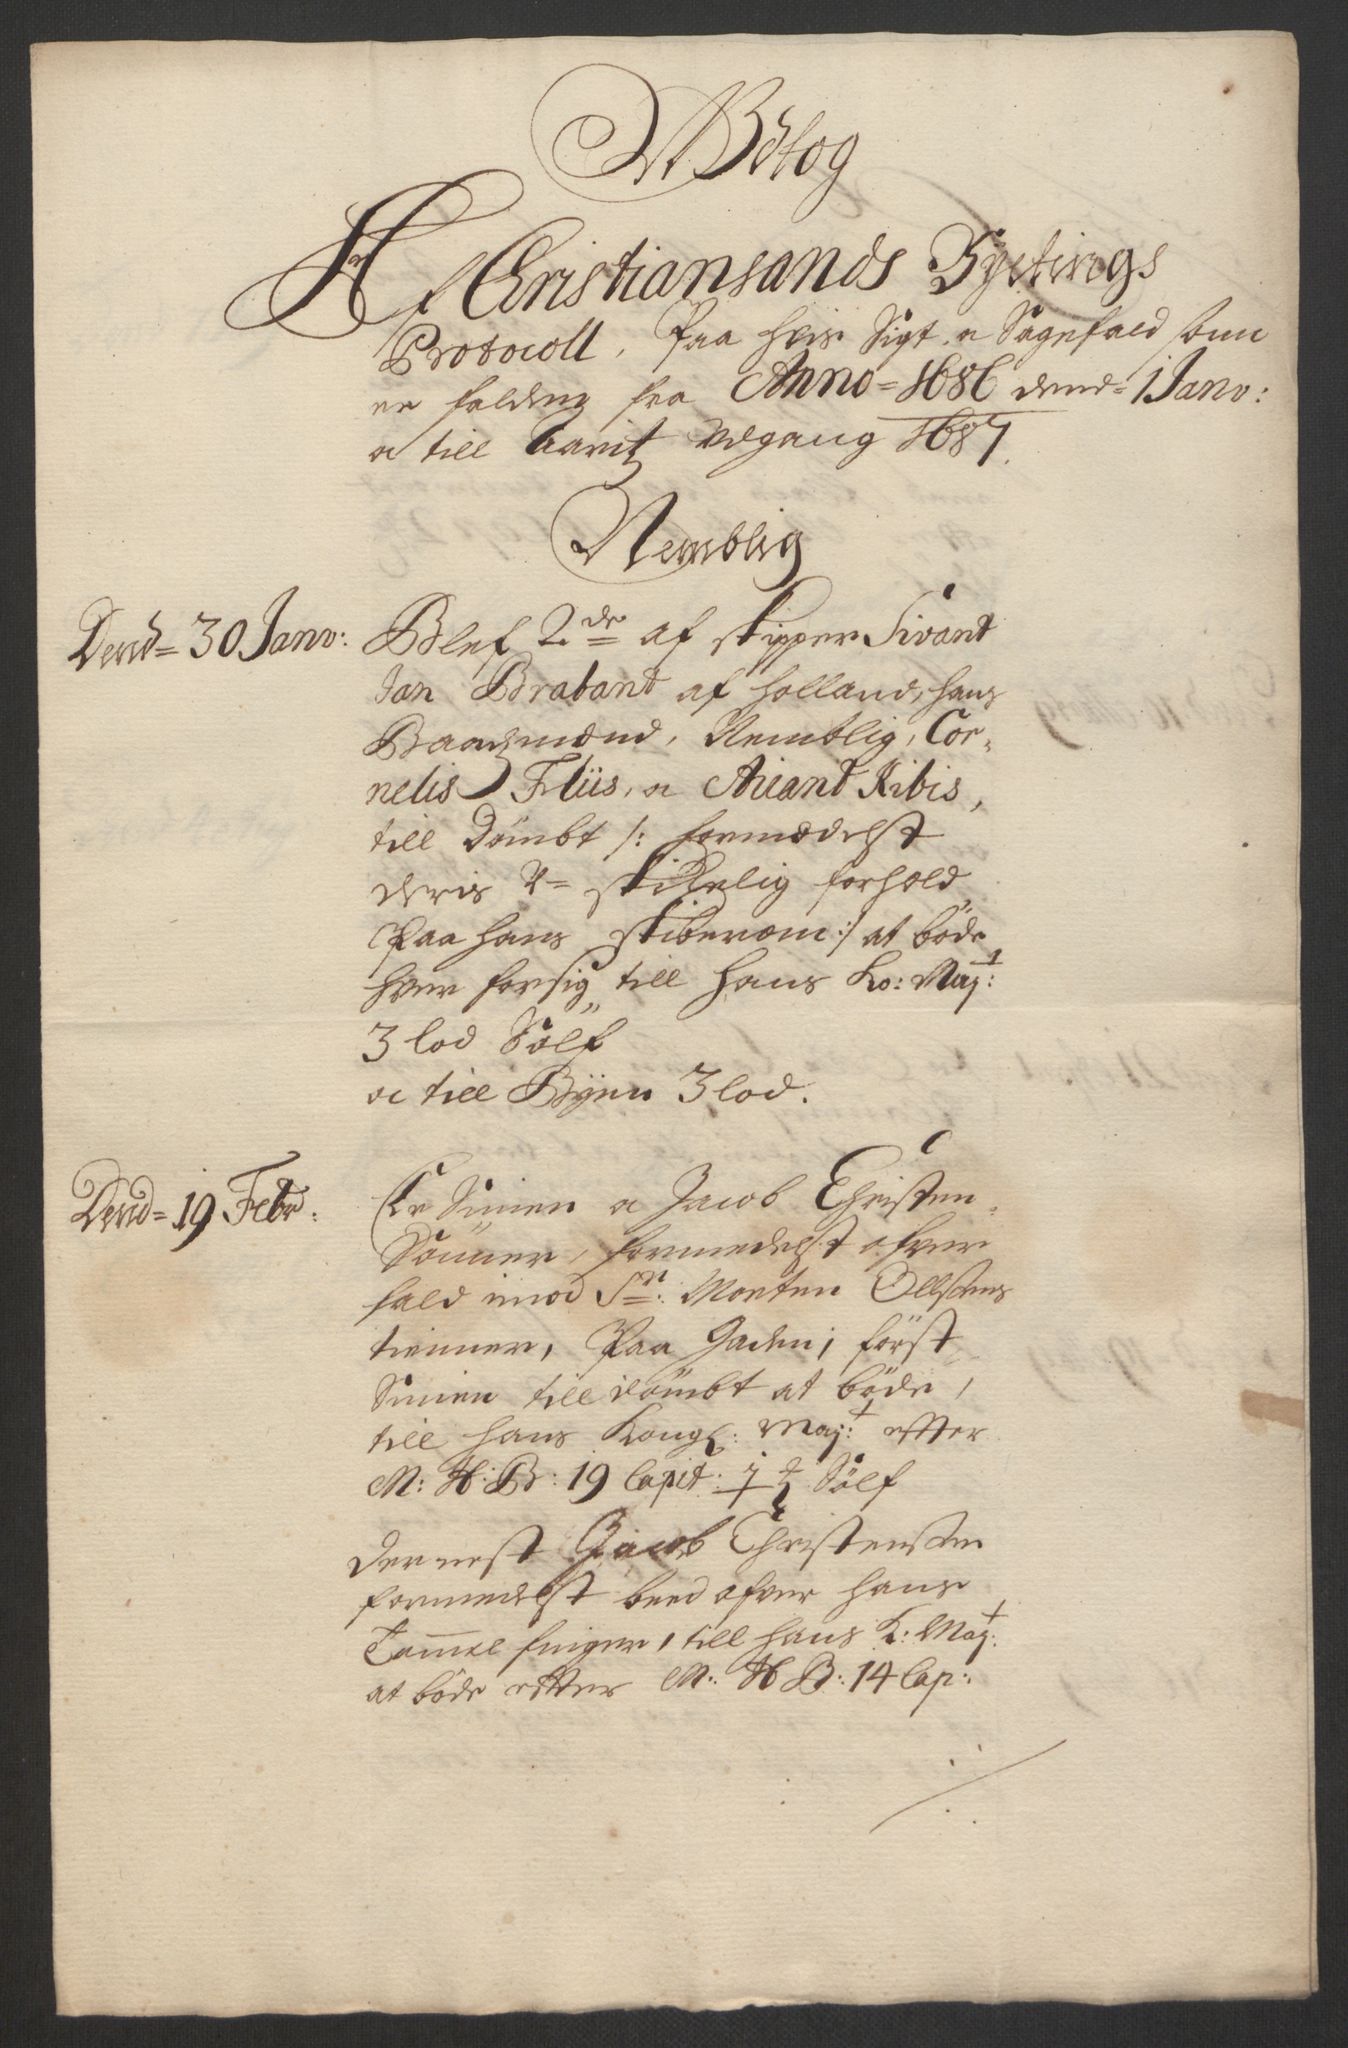 Udtog
Af Christiansands Byetings
Protocoll, Paa hvis Sigt oc Sagefald som
er falden fra Anno = 1686 dend = 1 Janv:
oc till Aaritz udgang 1687.
Nemblig
Dend = 30 Janv: Blef 2de af skipper Sivant
Jan Brabant af Holland, hans
Baadzmænd, Nemblig, Cor-
nelis Flüs, oc Ariant Ribis,
till Dömbt /: formedelst
deris U= skikelig forhold
Paa hans skiberom :/ at böde
hver forsig till Hans Ko: Maj:t
3 lod Sölf
oc till Byen 3 lod.
Dend = 19 Febr: Er Simen oc Jacob Christen-
Sönner, formedelst ofver
fald imod Sr: Morten Ollsens
tienner, Paa Gaden, först
Simen till dömbt at böde,
till hans Kongl: Maj:t efter
M: H: B: 19 Capit: Sölf
dernest Jacob Christensen
formedelst ofver hans
Tommel finger, till hans K: Maj:t
at böde efter M: H: B: 14 Cap: